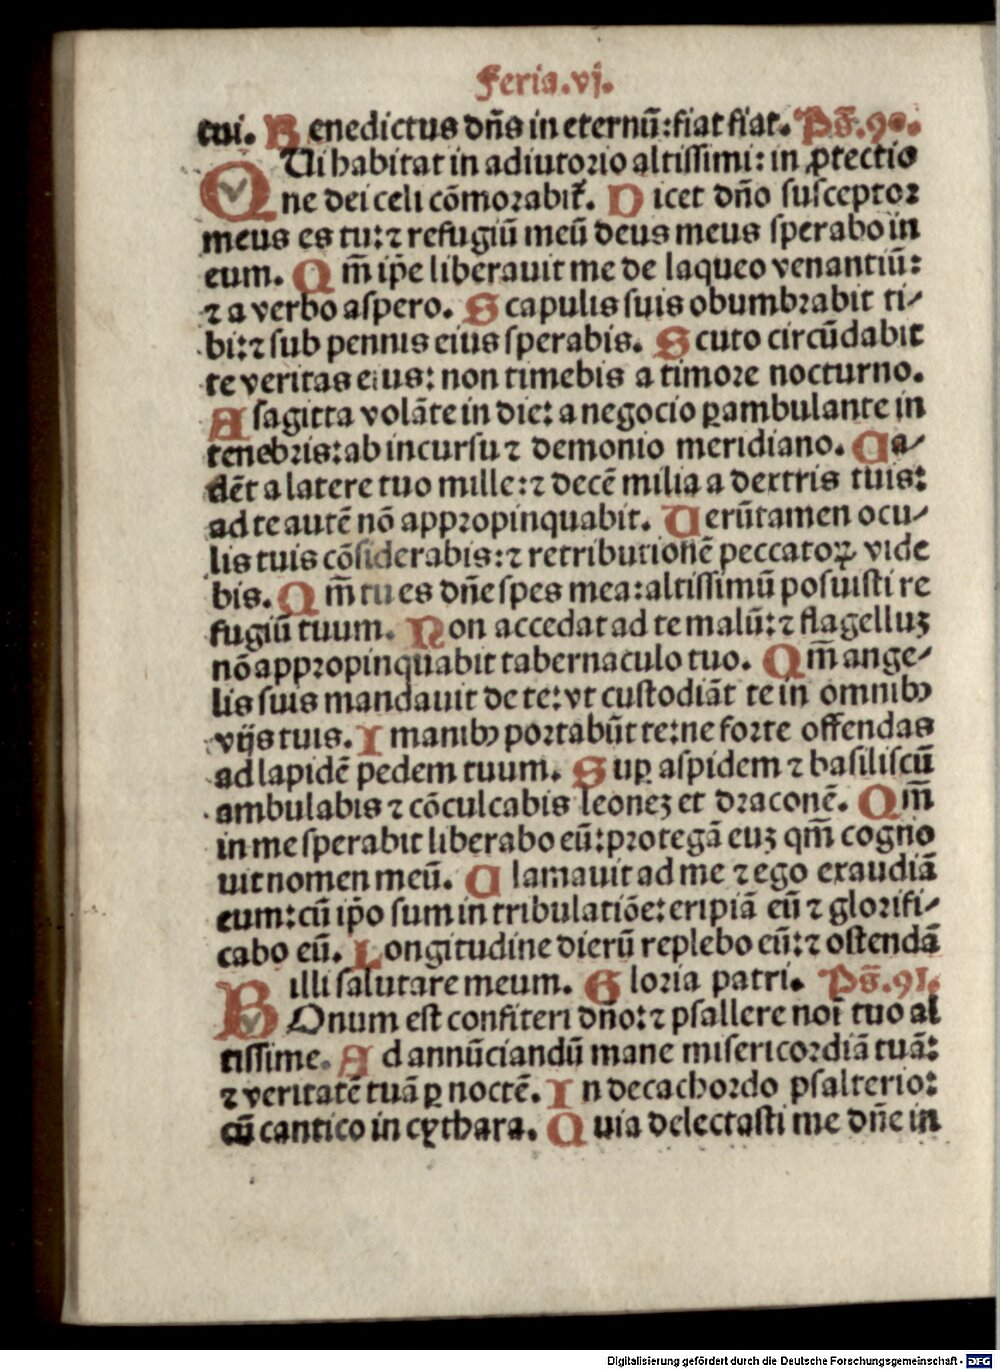 Feria.vj.
tui. Benedictus dn̄s in eternū:fiat fiat. Ps̄.90.
QUi habitat in adiutorio altissimi: in ꝓtectio
ne dei celi cōmorabit᷑. Dicet dn̄o susceptor
meus es tu:⁊ refugiū meū deus meus sperabo in
eum. Qm̄ ip̄e liberauit me de laqueo venantiū:
⁊ a verbo aspero. Scapulis suis obumbrabit ti⸗
bi:⁊ sub pennis eius sperabis. Scuto circūdabit
te veritas eius: non timebis a timore nocturno.
A sagitta volāte in die: a negocio ꝑambulante in
tenebris:ab incursu ⁊ demonio meridiano. Ca⸗
dēt a latere tuo mille:⁊ decē milia a dextris tuis:
ad te autē nō appropinquabit. Uerūtamen ocu⸗
lis tuis cōsiderabis:⁊ retributionē peccatoꝝ vide
bis. Qm̄ tu es dn̄e spes mea:altissimū posuisti re
fugiū tuum. Non accedat ad te malū:⁊ flagelluꝫ
nō appropinquabit tabernaculo tuo. Qm̄ ange⸗
lis suis mandauit de te:vt custodiāt te in omnibꝰ
vijs tuis. I manibꝰ portabūt te:ne forte offendas
ad lapidē pedem tuum. Suꝑ aspidem ⁊ basiliscū
ambulabis ⁊ cōculcabis leoneꝫ et draconē. Qm̄
in me sperabit liberabo eū:protegā euꝫ qm̄ cogno
uit nomen meū. Clamauit ad me ⁊ ego exaudiā
eum:cū ip̄o sum in tribulatiōe:eripiā eū ⁊ glorifi⸗
cabo eū. Longitudine dierū replebo eū:⁊ ostendā
illi salutare meum. Gloria patri. Ps̄.91.
BOnum est confiteri dn̄o:⁊ psallere noī tuo al
tissime. Ad annūciandū mane misericordiā tuā:
⁊ veritatē tuā ꝑ noctē. In decachordo psalterio:
cū cantico in cythara. Quia delectasti me dn̄e in
Digitalisierung gefördert durch die Deutsche Forschungsgemeinschaft - DFG